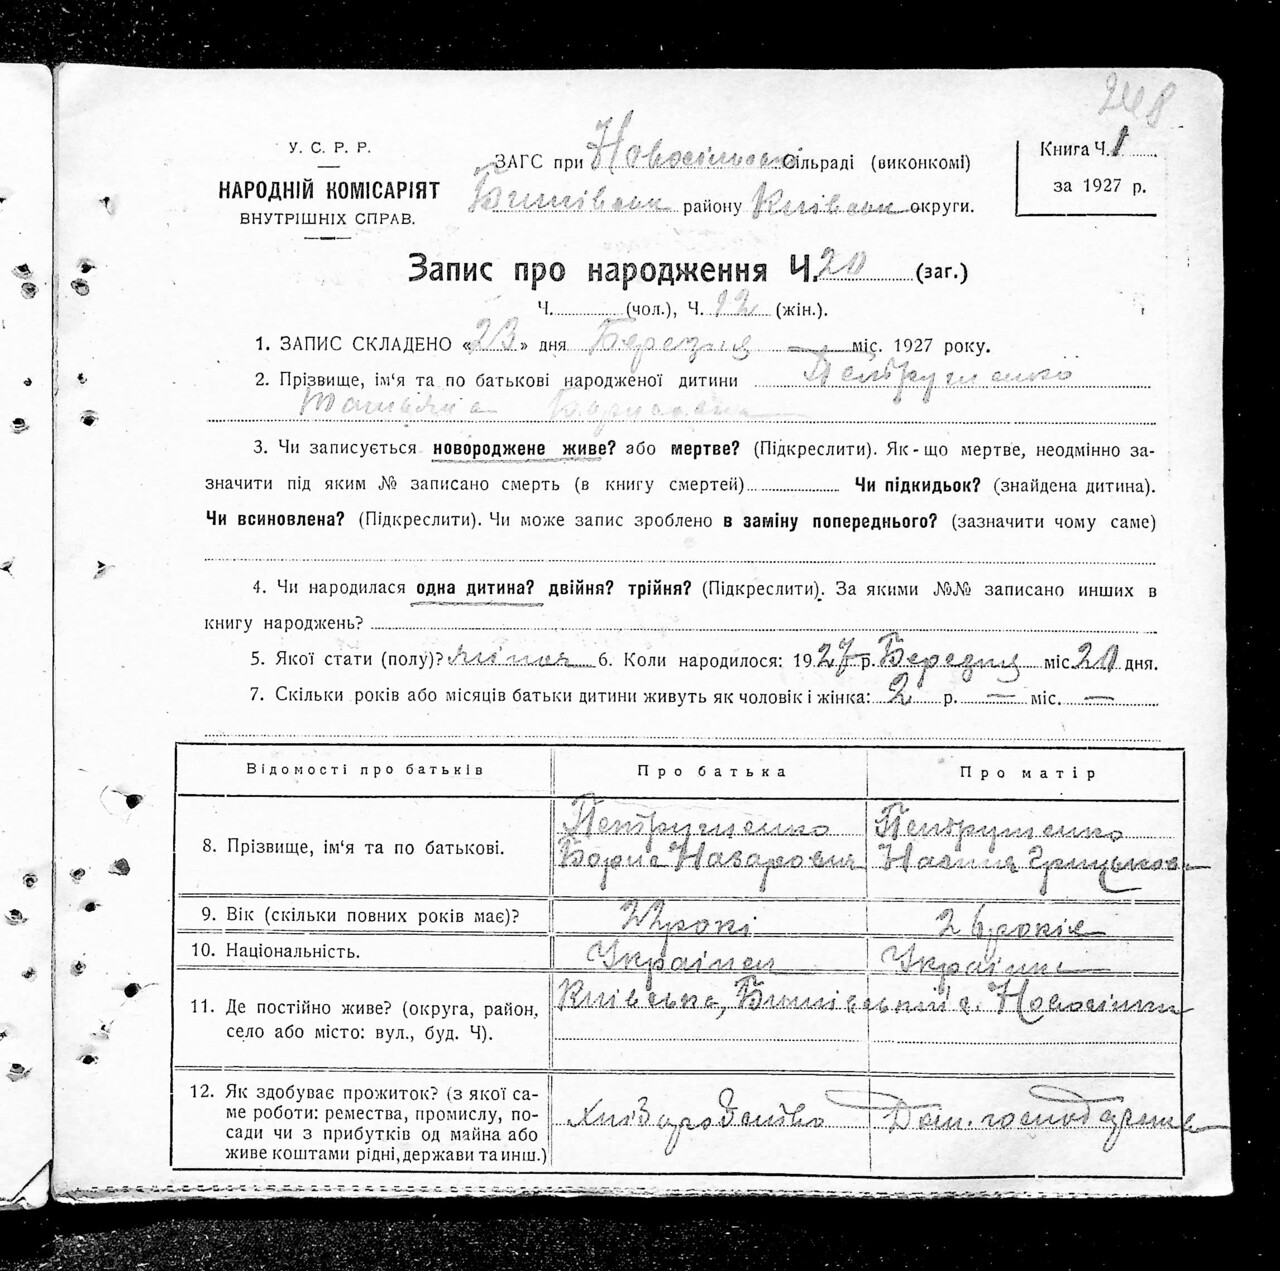 248
У. С. Р. Р.
НАРОДНІЙ КОМІСАРІЯТ
ВНУТРІШНІХ СПРАВ.
ЗАГС при Новосільській сільраді (виконкомі)
району Київськ округи.
Книга Ч. 1
за 1927 р.
Запис про народження Ч. 20 (заг.)
Ч. (чол.), Ч. 12 (жін.).
1. ЗАПИС СКЛАДЕНО «23» дня Березня міс. 1927 року.
2. Прізвище, ім'я та по батькові народженої дитини Петрушенко
Татьяна Борисовна
3. Чи записується новороджене живе? або мертве? (Підкреслити). Як-що мертве, неодмінно за-
значити під яким № записано смерть (в книгу смертей) Чи підкидьок? (знайдена дитина).
Чи всиновлена? (Підкреслити). Чи може запис зроблено в заміну попереднього? (зазначити чому саме)
4. Чи народилася одна дитина? двійня? трійня? (Підкреслити). За якими №№ записано инших в
книгу народжень?
5. Якої стати (полу)? жіноч 6. Коли народилося: 1927 р. Березня міс. 20 дня.
7. Скільки років або місяців батьки дитини живуть як чоловік і жінка: 2 р. — міс. —
Відомості про батьків
Про батька
Про матір
8. Прізвище, ім'я та по батькові.
Петрушенко
Борис Назарович
Петрушенко
Грицькова
9. Вік (скільки повних років має)?
22 рокі
26 років
10. Національність.
Українец
Українка
11. Де постійно живе? (округа, район,
село або місто: вул., буд. Ч).
Київська, с. Новосілки
12. Як здобуває прожиток? (з якої са-
ме роботи: ремества, промислу, по-
сади чи з прибутків од майна або
живе коштами рідні, держави та инш.)
Хліборобство
Дом. господарка